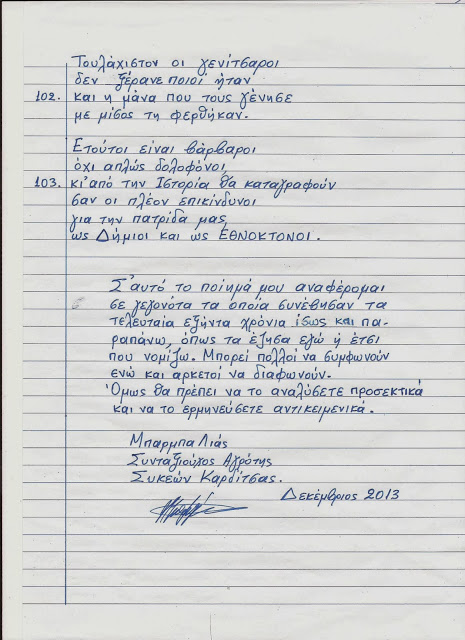 Τουλάχιστον οι γενίτσαροι
δεν ξέρανε ποιοί ήταν
102. και η μάνα που τους γένησε
με μίσος τη φερθήκαν.
Ετούτοι είναι βάρβαροι
όχι απλώς δολοφόνοι,
103. κι' από την Ιστορία θα καταγραφούν
σαν οι πλέον επικίνδυνοι
για την πατρίδα μας,
ως Δήμιοι και ως ΕΘΝΟΚΤΟΝΟΙ.
Σ' αυτό το ποίημά μου αναφέρομαι
σε γεγονότα τα οποία συνέβησαν τα
τελευταία εξήντα χρόνια ίσως και πα-
ραπάνω, όπως τα έζησα εγώ ή έτσι
που νομίζω. Μπορεί πολλοί να συμφωνούν
ενώ και αρκετοί να διαφωνούν.
Όμως θα πρέπει να το αναλύσετε προσεκτικά
και να το ερμηνεύσετε αντικειμενικά.
Μπαρμπα Λιάς
Συνταξιούχος Αγρότης
Συκεών Καρδίτσας.
Δεκέμβριος 2013